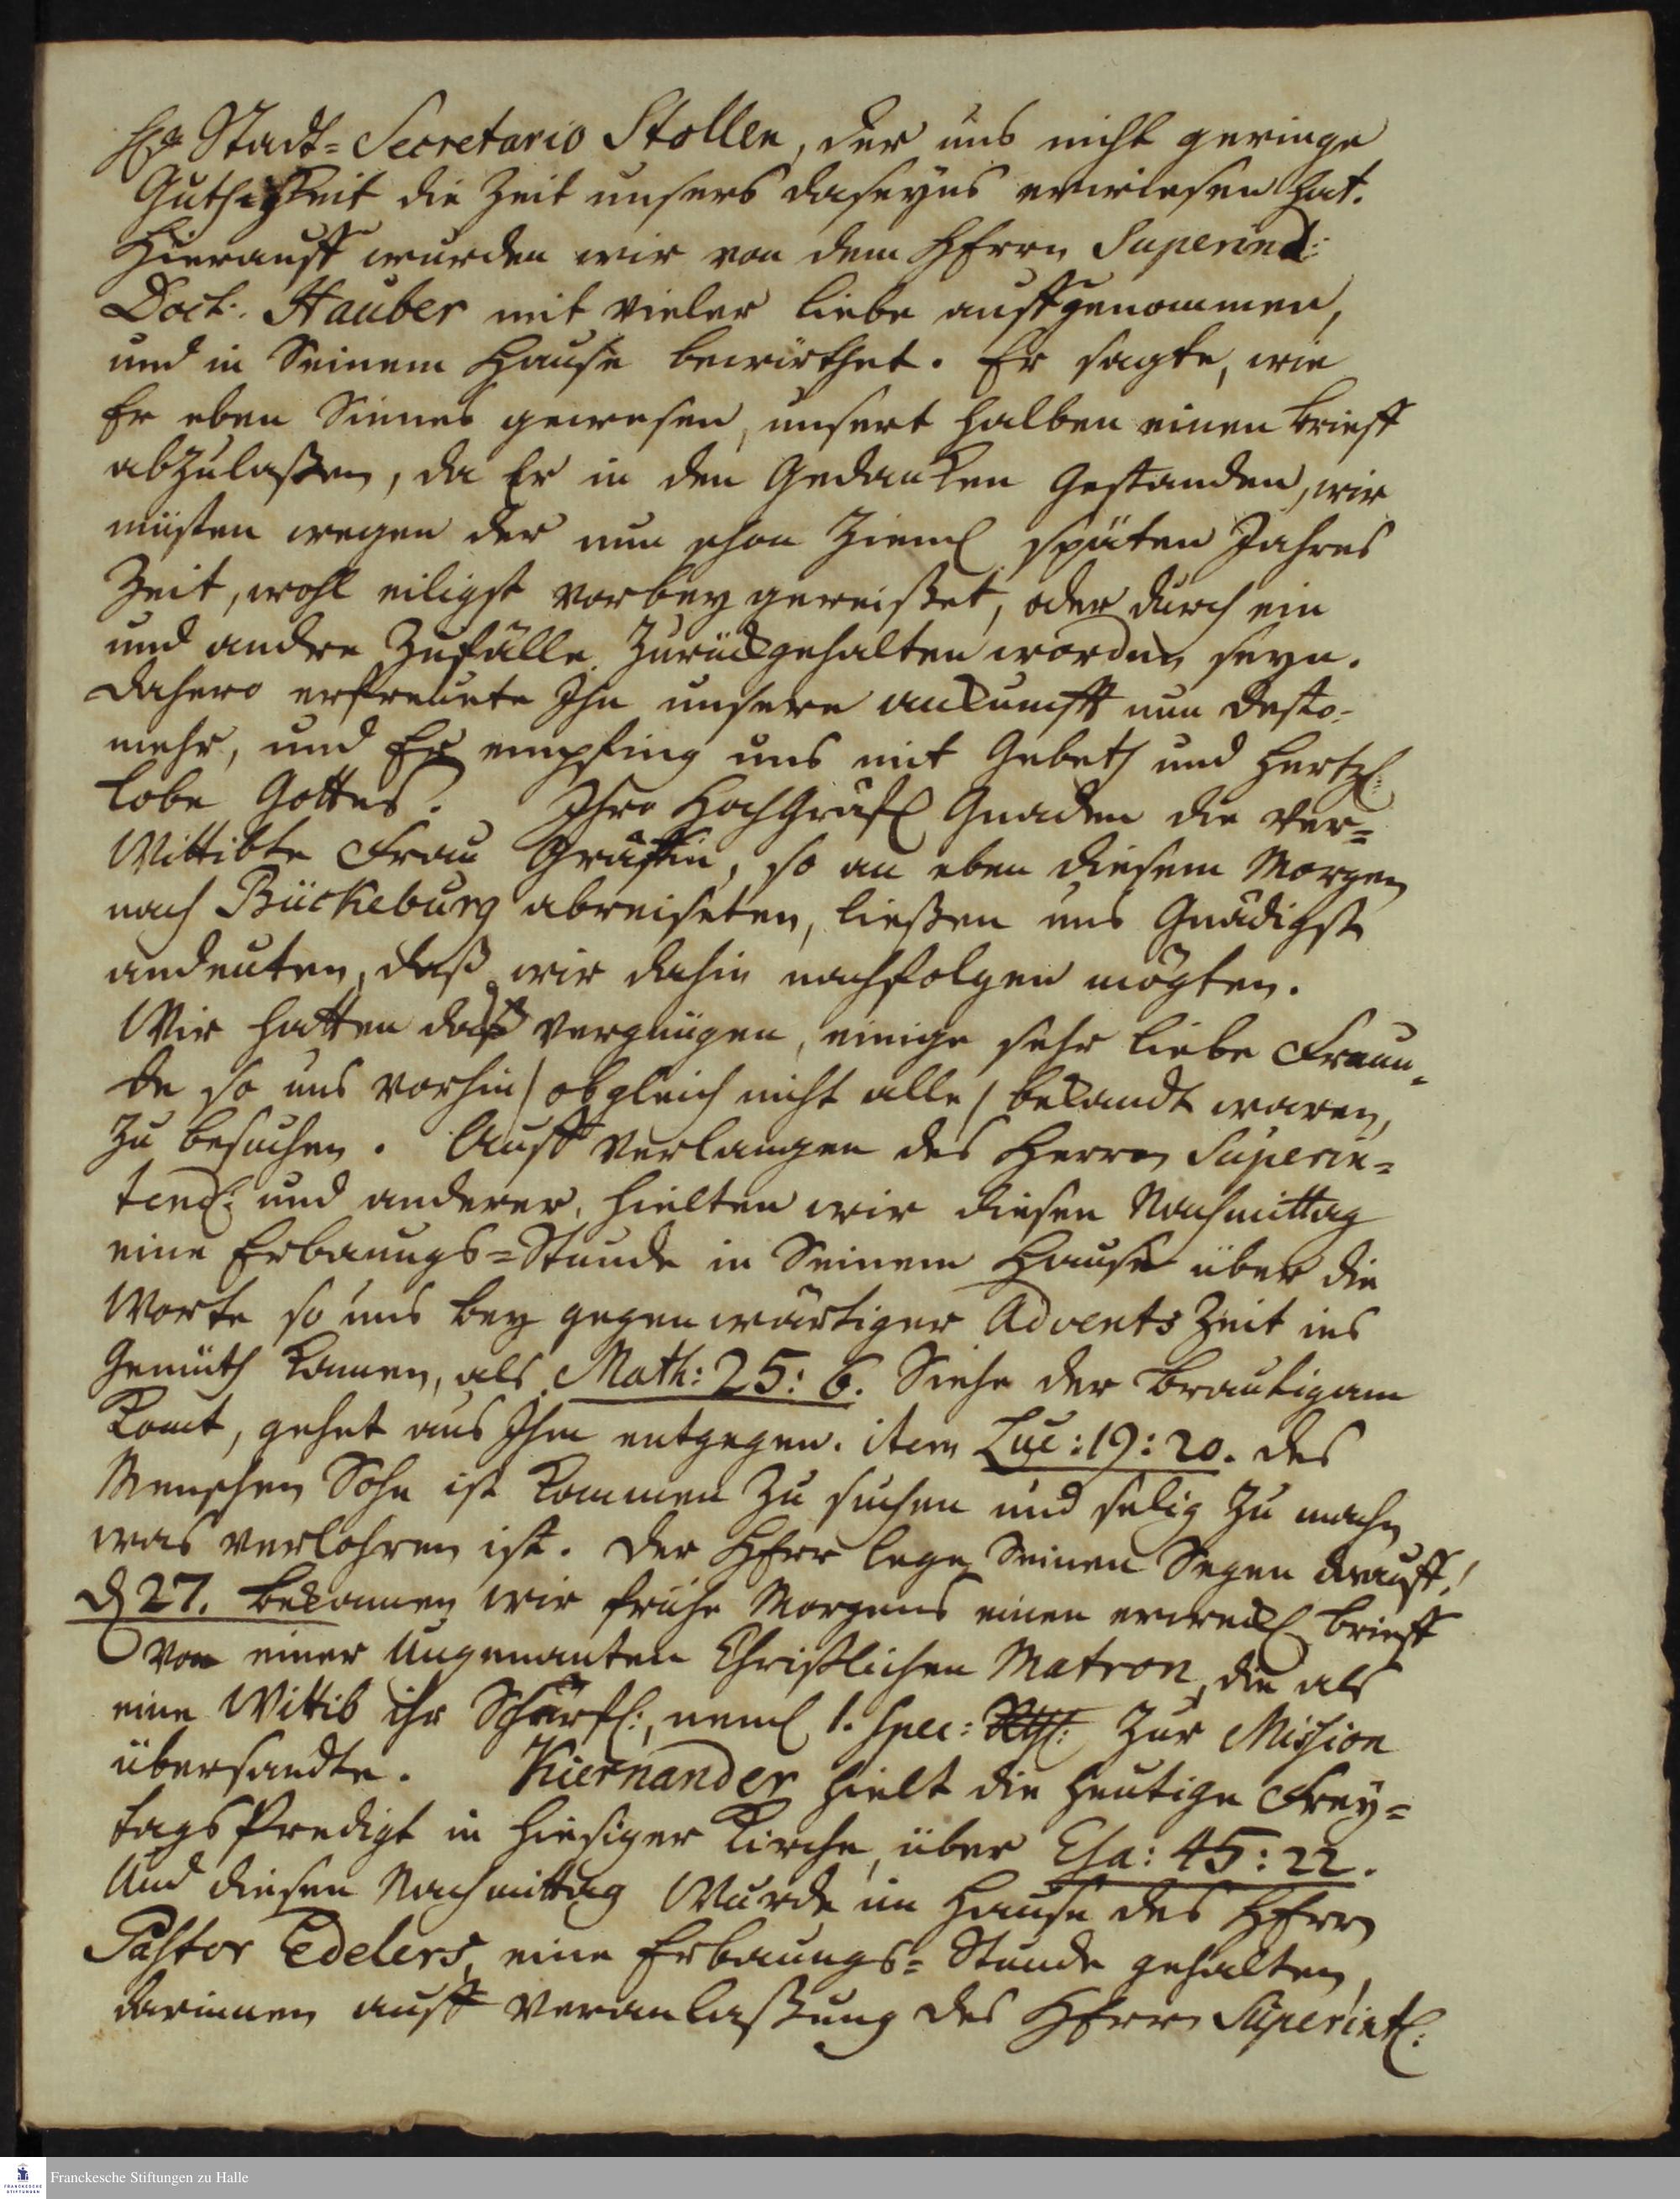 H. Stadt=Secretario Stollen, der uns nicht geringe
Guthigkeit die Zeit unsers daseyns erwiesen hat.
Hierauff wurden wir von dem HErrn Superind:
Doct: Hauber mit vieler liebe auffgenommen,
und in Seinem Hause bewirthet. Er sagte, wie
Er eben Sinnes gewesen, unsert halben einen brieff
abzulaßen, da Er in den Gedancken gestanden, wir
müsten wegen der nun schon zieml späten Jahres
Zeit, wohl eiligst vorbey gereißet, oder durch ein
und andre Zufälle zurückgehalten worden seyn.
dahero erfreuete Ihn unsere ankunfft nun desto-
mehr, und Er empfing uns mit Gebeth und hertzl:
Lobe Gottes. Ihro HochGräfl Gnaden die Ver=
Wittibte Frau Gräffin, so an eben diesem Morgen
nach Bückeburg abreiseten, ließen uns Gnädigst
andeuten, daß wir dahin nachfolgen mögten.
Wir hatten daß vergnügen, einige sehr liebe Freun-
de so uns vorhin / obgleich nicht alle / bekandt waren,
zu besuchen. Auff Verlangen des Herrn Superin=
tend: und anderer, hielten wir diesen Nachmittag
eine Erbauungs=Stunde in Seinem Hause über die
Worte so uns bey gegenwärtiger Advents Zeit ins
Gemüth kamen, als Math: 25: 6. Siehe der Bräutigam
komt, gehet aus Ihm entgegen. item Luc: 19: 20. des
Menschen Sohn ist kommen zu suchen und selig zu machen
was verlohren ist. der HErr lege Seinen Segen drauff!
d 27. bekamen wir frühe Morgens einen erweckl brieff
von einer Ungenanten Christlichen Matron, die als
eine Wittib ihr Schärfl:, neml 1. Spec: Rthl: zur Mission
übersandte. Kiernander hielt die heutige Frey=
tags Predigt in hiesiger Kirche, über Esa: 45: 22.
Und diesen Nachmittag Wurde im Hause des HErrn
Pastor Edelers, eine Erbauungs=Stunde gehalten,
darinnen auff Veranlaßung des HErrn Superintd:
Franckesche Stiftungen zu Halle